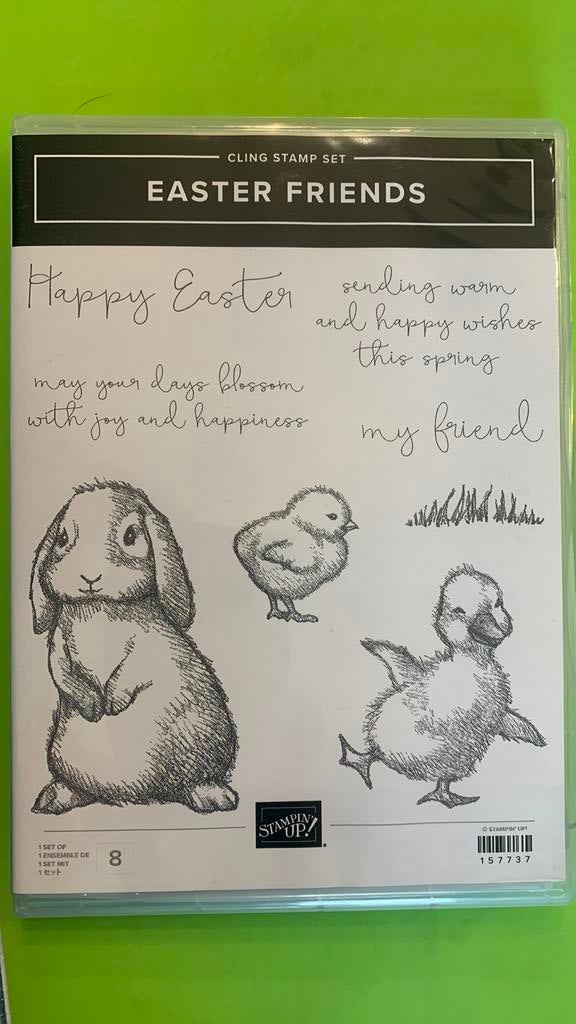 CLING STAMP SET
EASTER FRIENDS
Happy Easter
sending warm
and happy wishes
this spring
may your days blossom
with joy and happiness
my friend
STAMPIN' UP!®
1 SET OF
1 ENSEMBLE DE
1 SET MIT
1 セット
8
© STAMPIN' UP!
157737